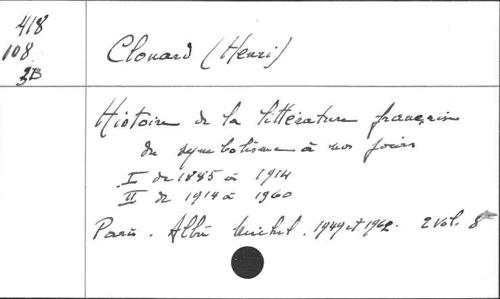 418
108
3B
Clouard (Henri)
Histoire de la littérature française
du symbolisme à nos jours
I de 1885 à 1914
II de 1914 à 1960
Paris. Albin Michel. 1949 et 1962. 2 vol. 8°